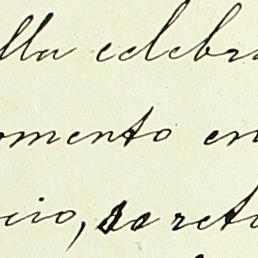 lla celebra
omento en
cio, se reti